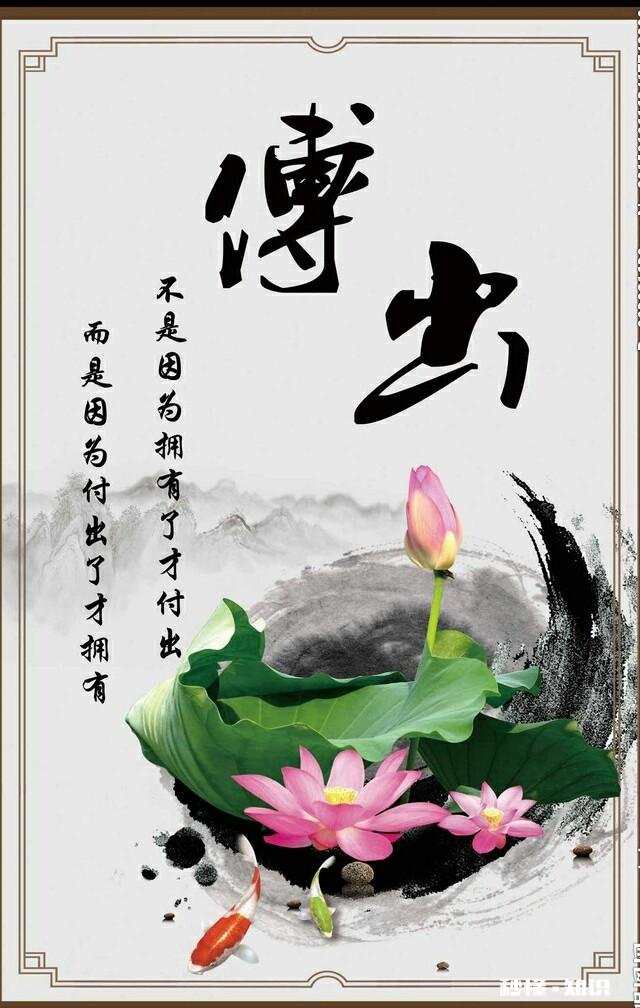 傅出
不是因为拥有了才付出
而是因为付出了才拥有